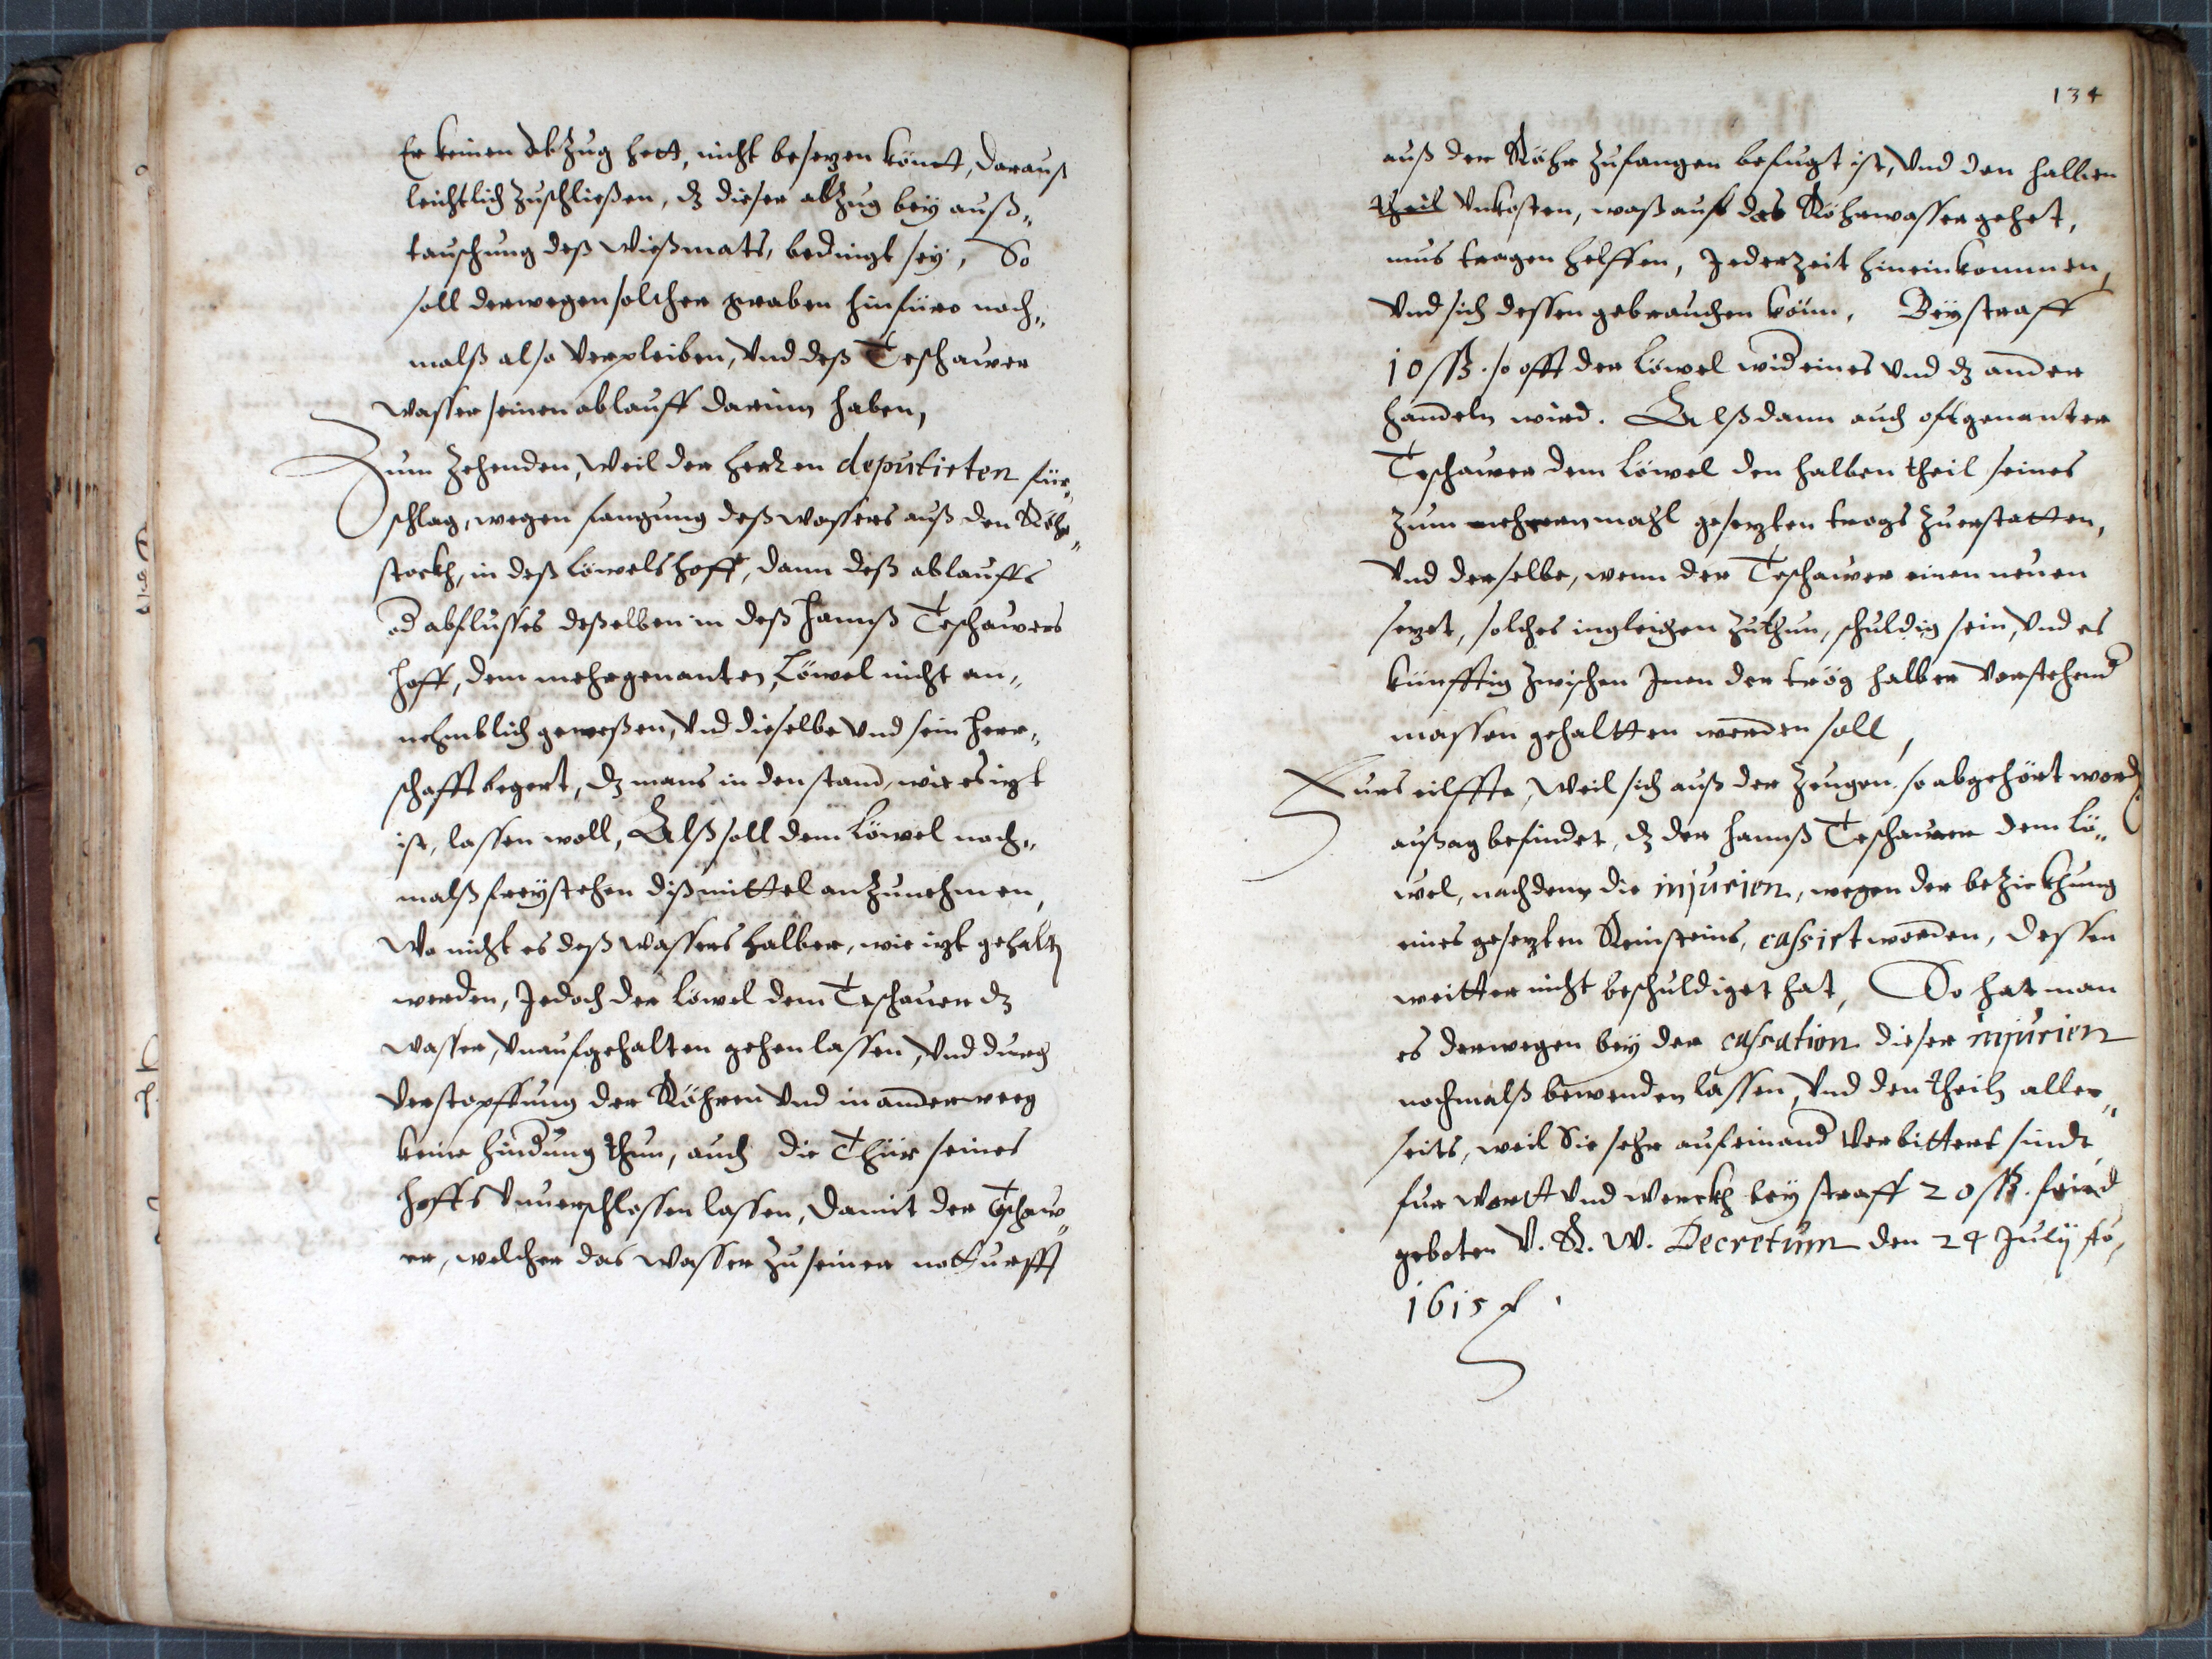 Er keinen abzug hett, nicht besezen könnt, darauß
leichtlich zuschließen, dz dieser abzug bey auß„
tauschung deß wießmats, bedingt sey, So
soll derwegen solcher graben hinfüro noch„
malß also verpleiben, vnd deß Teschawer
wasser seinen ablauff darinn haben,
Zum Zehenden, weil der herren deputirten für„
schlag, wegen fangung deß wassers auß den Röhr„
stockh, in deß Löwels hoff, dann deß ablauffs
od abflusses deßelben in deß hannß Teschawers
hoff, dem mehrgenanten Löwel nicht an„
nehmblich geweßen, vnd dieselbe vnd sein herr„
schafft begert, dz mans in den stand, wie es izt
ist, lassen woll, Alß soll dem Löwel noch„
malß freystehen diß mittel anzunehmen,
Wo nicht es deß wassers halber, wie izt gehaltn
werden, Jedoch der Löwel dem Teschauer dz
wasser, vnaufgehalten gehen lassen, vnd durch
verstopffung der Röhren vnd in anderweeg
keine hindung thun, auch die Thür seines
hoffs vnuerschlossen lassen, damit der Teschaw„
er, welcher das wasser zu seiner notturfft
134
auß der Röhr zufangen befugt ist, vnd den halben
theil vnkosten, waß auff das Röhrwasser gehet,
mus tragen helffen, Jederzeit hinein kommen,
vnd sich dessen gebrauchen könn, Bey straff
10 fß. so offt der Löwel wid eines vnd dz ander
handeln wird. Alßdann auch oftgenanter
Teschawer dem Löwel den halben theil seines
zum mehrernmahl gesezten trogs zuerstatten,
vnd derselbe, wenn der Teschawer einen neuen
sezet, solches ingleichen zuthun, schuldig sein, vnd es
künfftig zwischen Jnen der trög halber vorstehend
massen gehaltten werden soll,
Furs eilffte, weil sich auß der zeugen, so abgehört word
außag befindet, dz der hannß Teschawer dem Lö„
wel, nachdem die injurien, wegen der beziekhung
eines gesezten Reinsteins, cassirt worden, dessen
weitter nicht beschuldiget hat, So hat man
es derwegen bey der cassation dieser injurien
nochmalß bewenden lassen, vnd den theiln aller„
seits, weil Sie sehr aufeinand verbittert sindt,
fur wortt vnd werckh bey straff 20 fß. frid
geboten V. R. W. Decretum den 24 July Ao,
1615